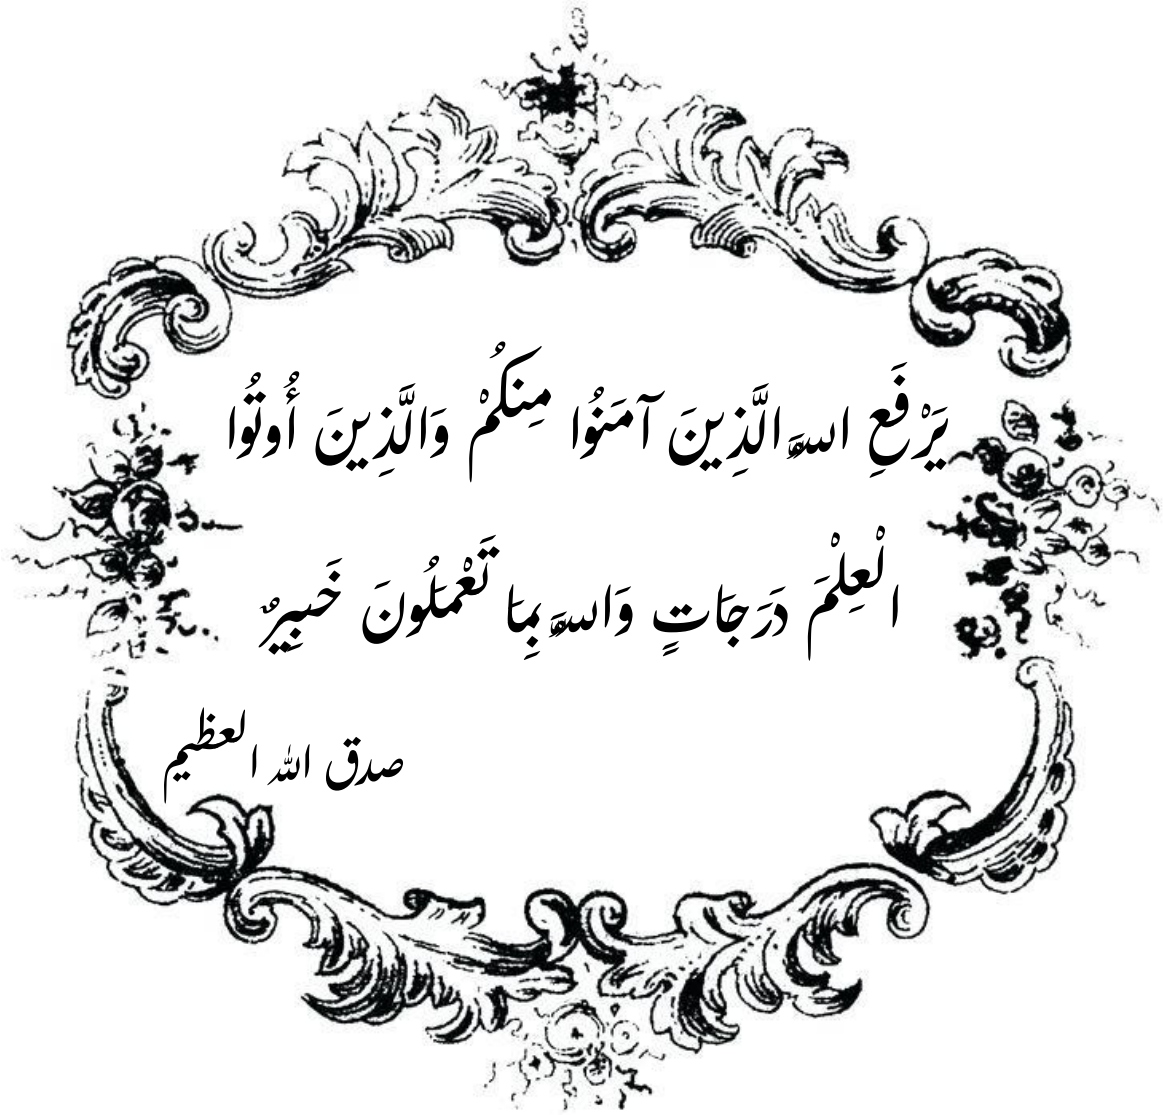 يَرْفَعِ اللَّهُ الَّذِينَ آمَنُوا مِنكُمْ وَالَّذِينَ أُوتُوا
الْعِلْمَ دَرَجَاتٍ وَاللَّهُ بِمَا تَعْمَلُونَ خَبِيرٌ
صدق الله العظيم